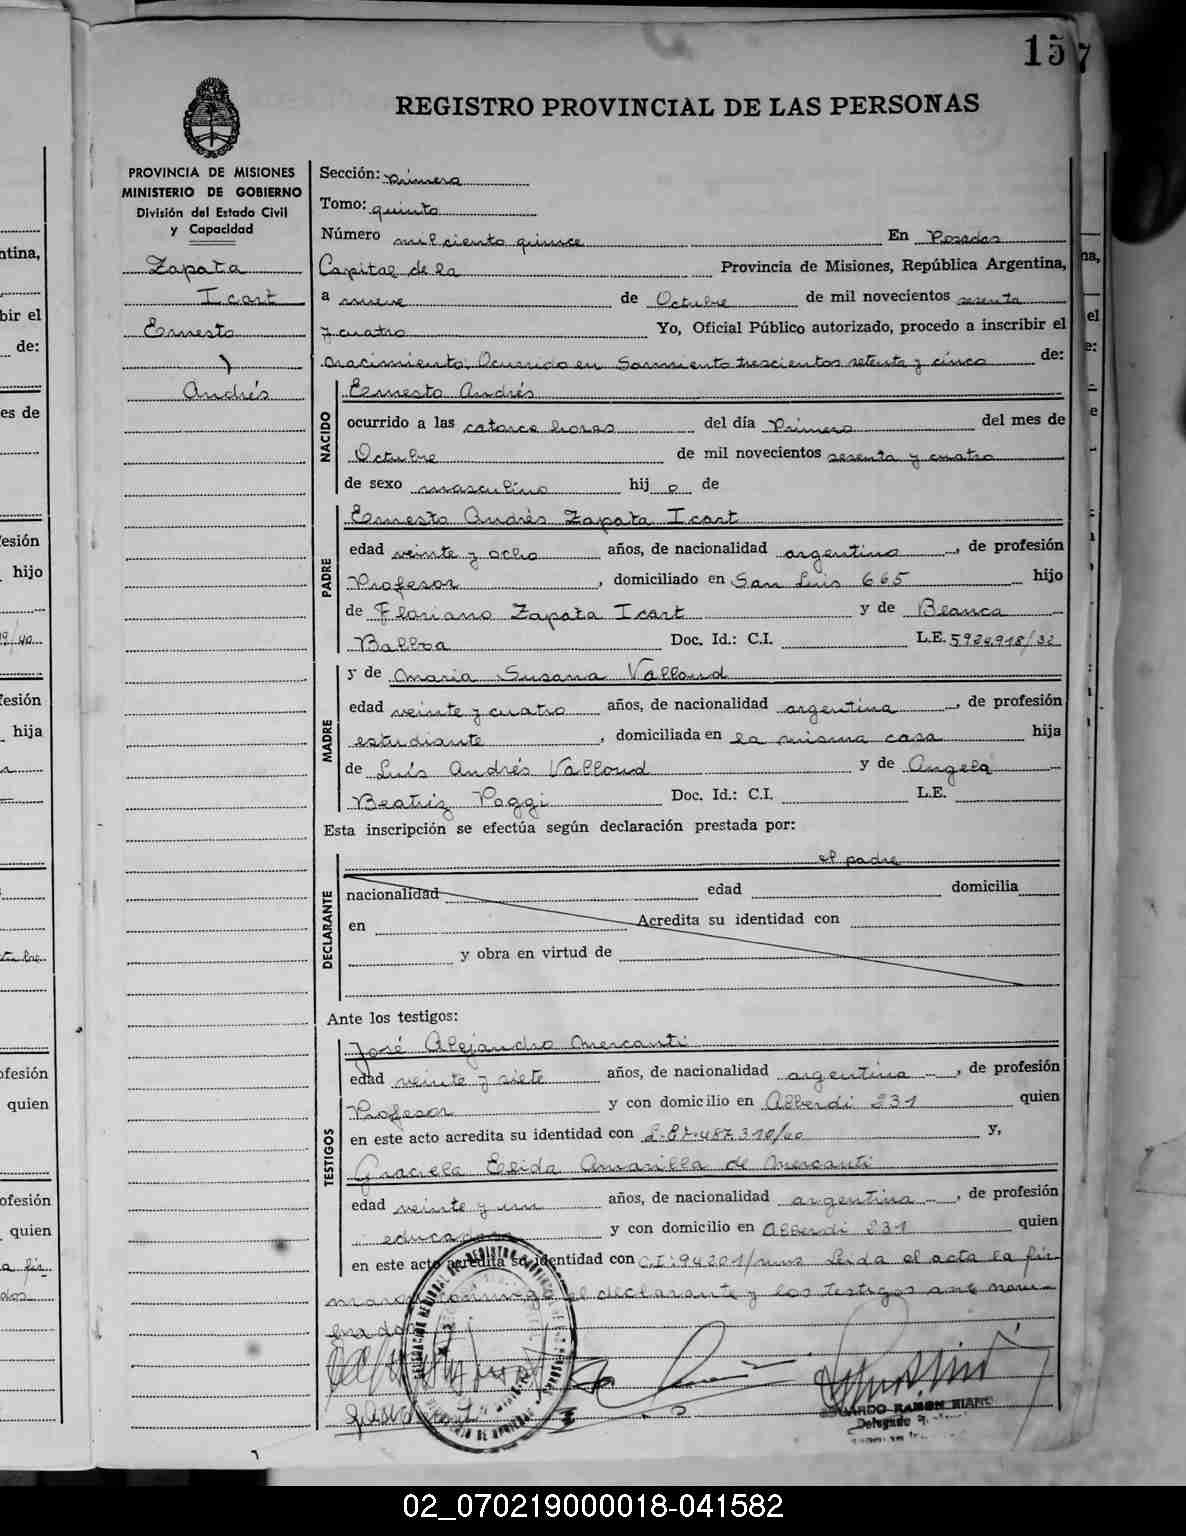 157
REGISTRO PROVINCIAL DE LAS PERSONAS
PROVINCIA DE MISIONES
MINISTERIO DE GOBIERNO
División del Estado Civil
y Capacidad
Zapata
Icart
Ernesto
Andrés
Sección: primera
Tomo: quinto
Número mil ciento quince En Posadas
Capital de la Provincia de Misiones, República Argentina,
a nueve de Octubre de mil novecientos sesenta
y cuatro Yo, Oficial Público autorizado, procedo a inscribir el
nacimiento. Ocurrido en Sarmiento trescientos setenta y cinco de:
NACIDO
Ernesto Andrés
ocurrido a las catorce horas del día Primero del mes de
Octubre de mil novecientos sesenta y cuatro
de sexo masculino hij o de
PADRE
Ernesto Andrés Zapata Icart
edad veinte y ocho años, de nacionalidad argentino, de profesión
Profesor, domiciliado en San Luis 665 hijo
de Floriano Zapata Icart y de Blanca
Balboa Doc. Id.: C.I. L.E. 5924918/32
MADRE
y de Maria Susana Valloud
edad veinte y cuatro años, de nacionalidad argentina, de profesión
estudiante, domiciliada en la misma casa hija
de Luis Andrés Valloud y de Angela
Beatriz Poggi Doc. Id.: C.I. L.E.
Esta inscripción se efectúa según declaración prestada por:
DECLARANTE
el padre
nacionalidad edad domicilia
en Acredita su identidad con
y obra en virtud de
Ante los testigos:
TESTIGOS
José Alejandro Mercanti
edad veinte y siete años, de nacionalidad argentina, de profesión
Profesor y con domicilio en Alberdi 231 quien
en este acto acredita su identidad con y,
Graciela Elida Amarilla de Mercanti
edad veinte y un años, de nacionalidad argentina, de profesión
educadora y con domicilio en Alberdi 231 quien
en este acto acredita su identidad con C.I: 94201/mns Leida el acta la fir-
maron conmigo el declarante y los testigos ante nom-
brados
Delegado
02_070219000018-041582